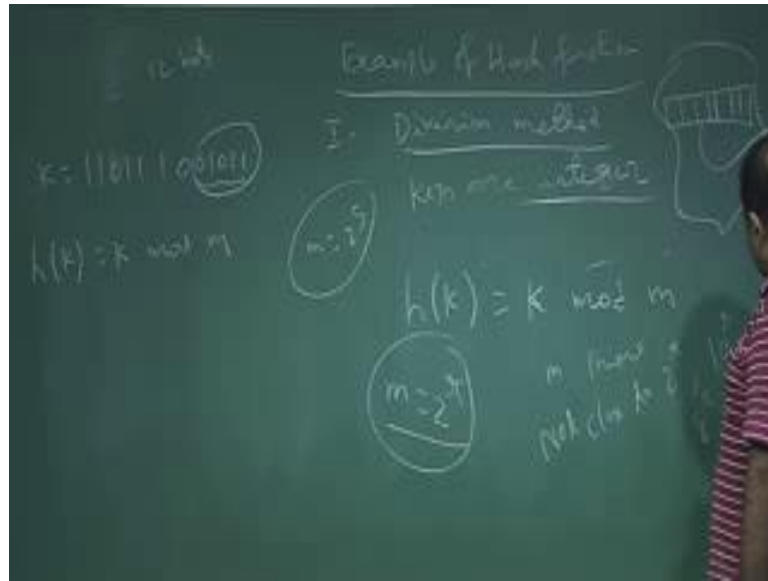 12 bits
Example of Hash function
I. Division method
Keys are integer
K = 110111001011
h(K) = K mod m
m = 2^5
h(K) = K mod m
m = 2^r
m prime
not close to 2